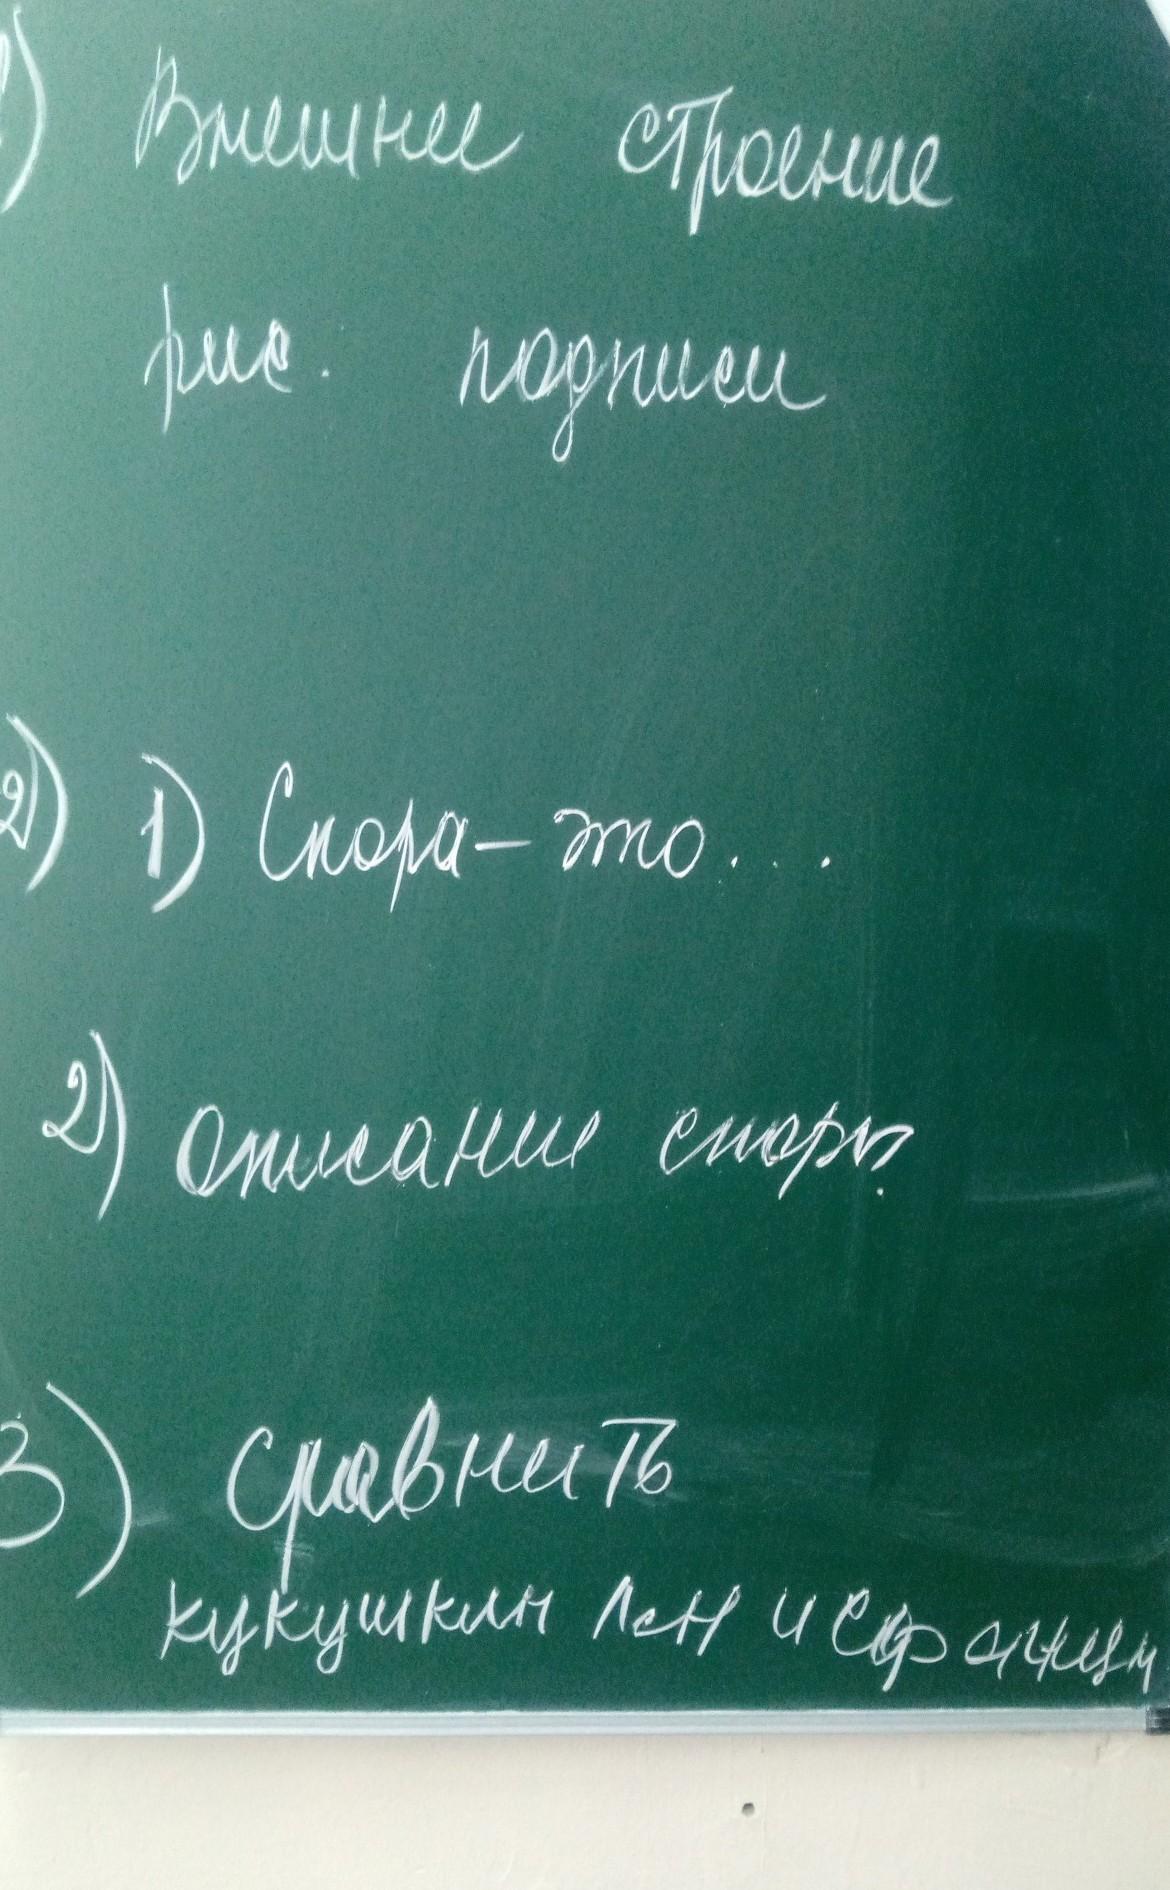 1) Внешнее строение
рис. подписи
2) 1) Спора - это...
2) описание спор.
3) Сравнить
кукушкин лен и сфагнум